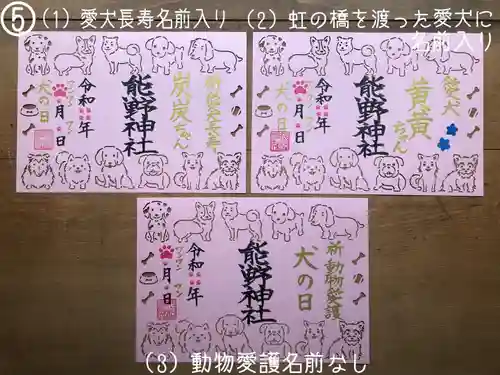 ⑤(1) 愛犬長寿名前入り
(2) 虹の橋を渡った愛犬に
名前入り
祈愛犬長寿
炭炭ちゃん
熊野神社
令和 年
ワンワン ワン
月 日
犬の日
愛犬
黄黄ちゃん
熊野神社
令和 年
ワンワン ワン
月 日
犬の日
祈 動物愛護
犬の日
熊野神社
令和 年
ワンワン ワン
月 日
(3) 動物愛護名前なし